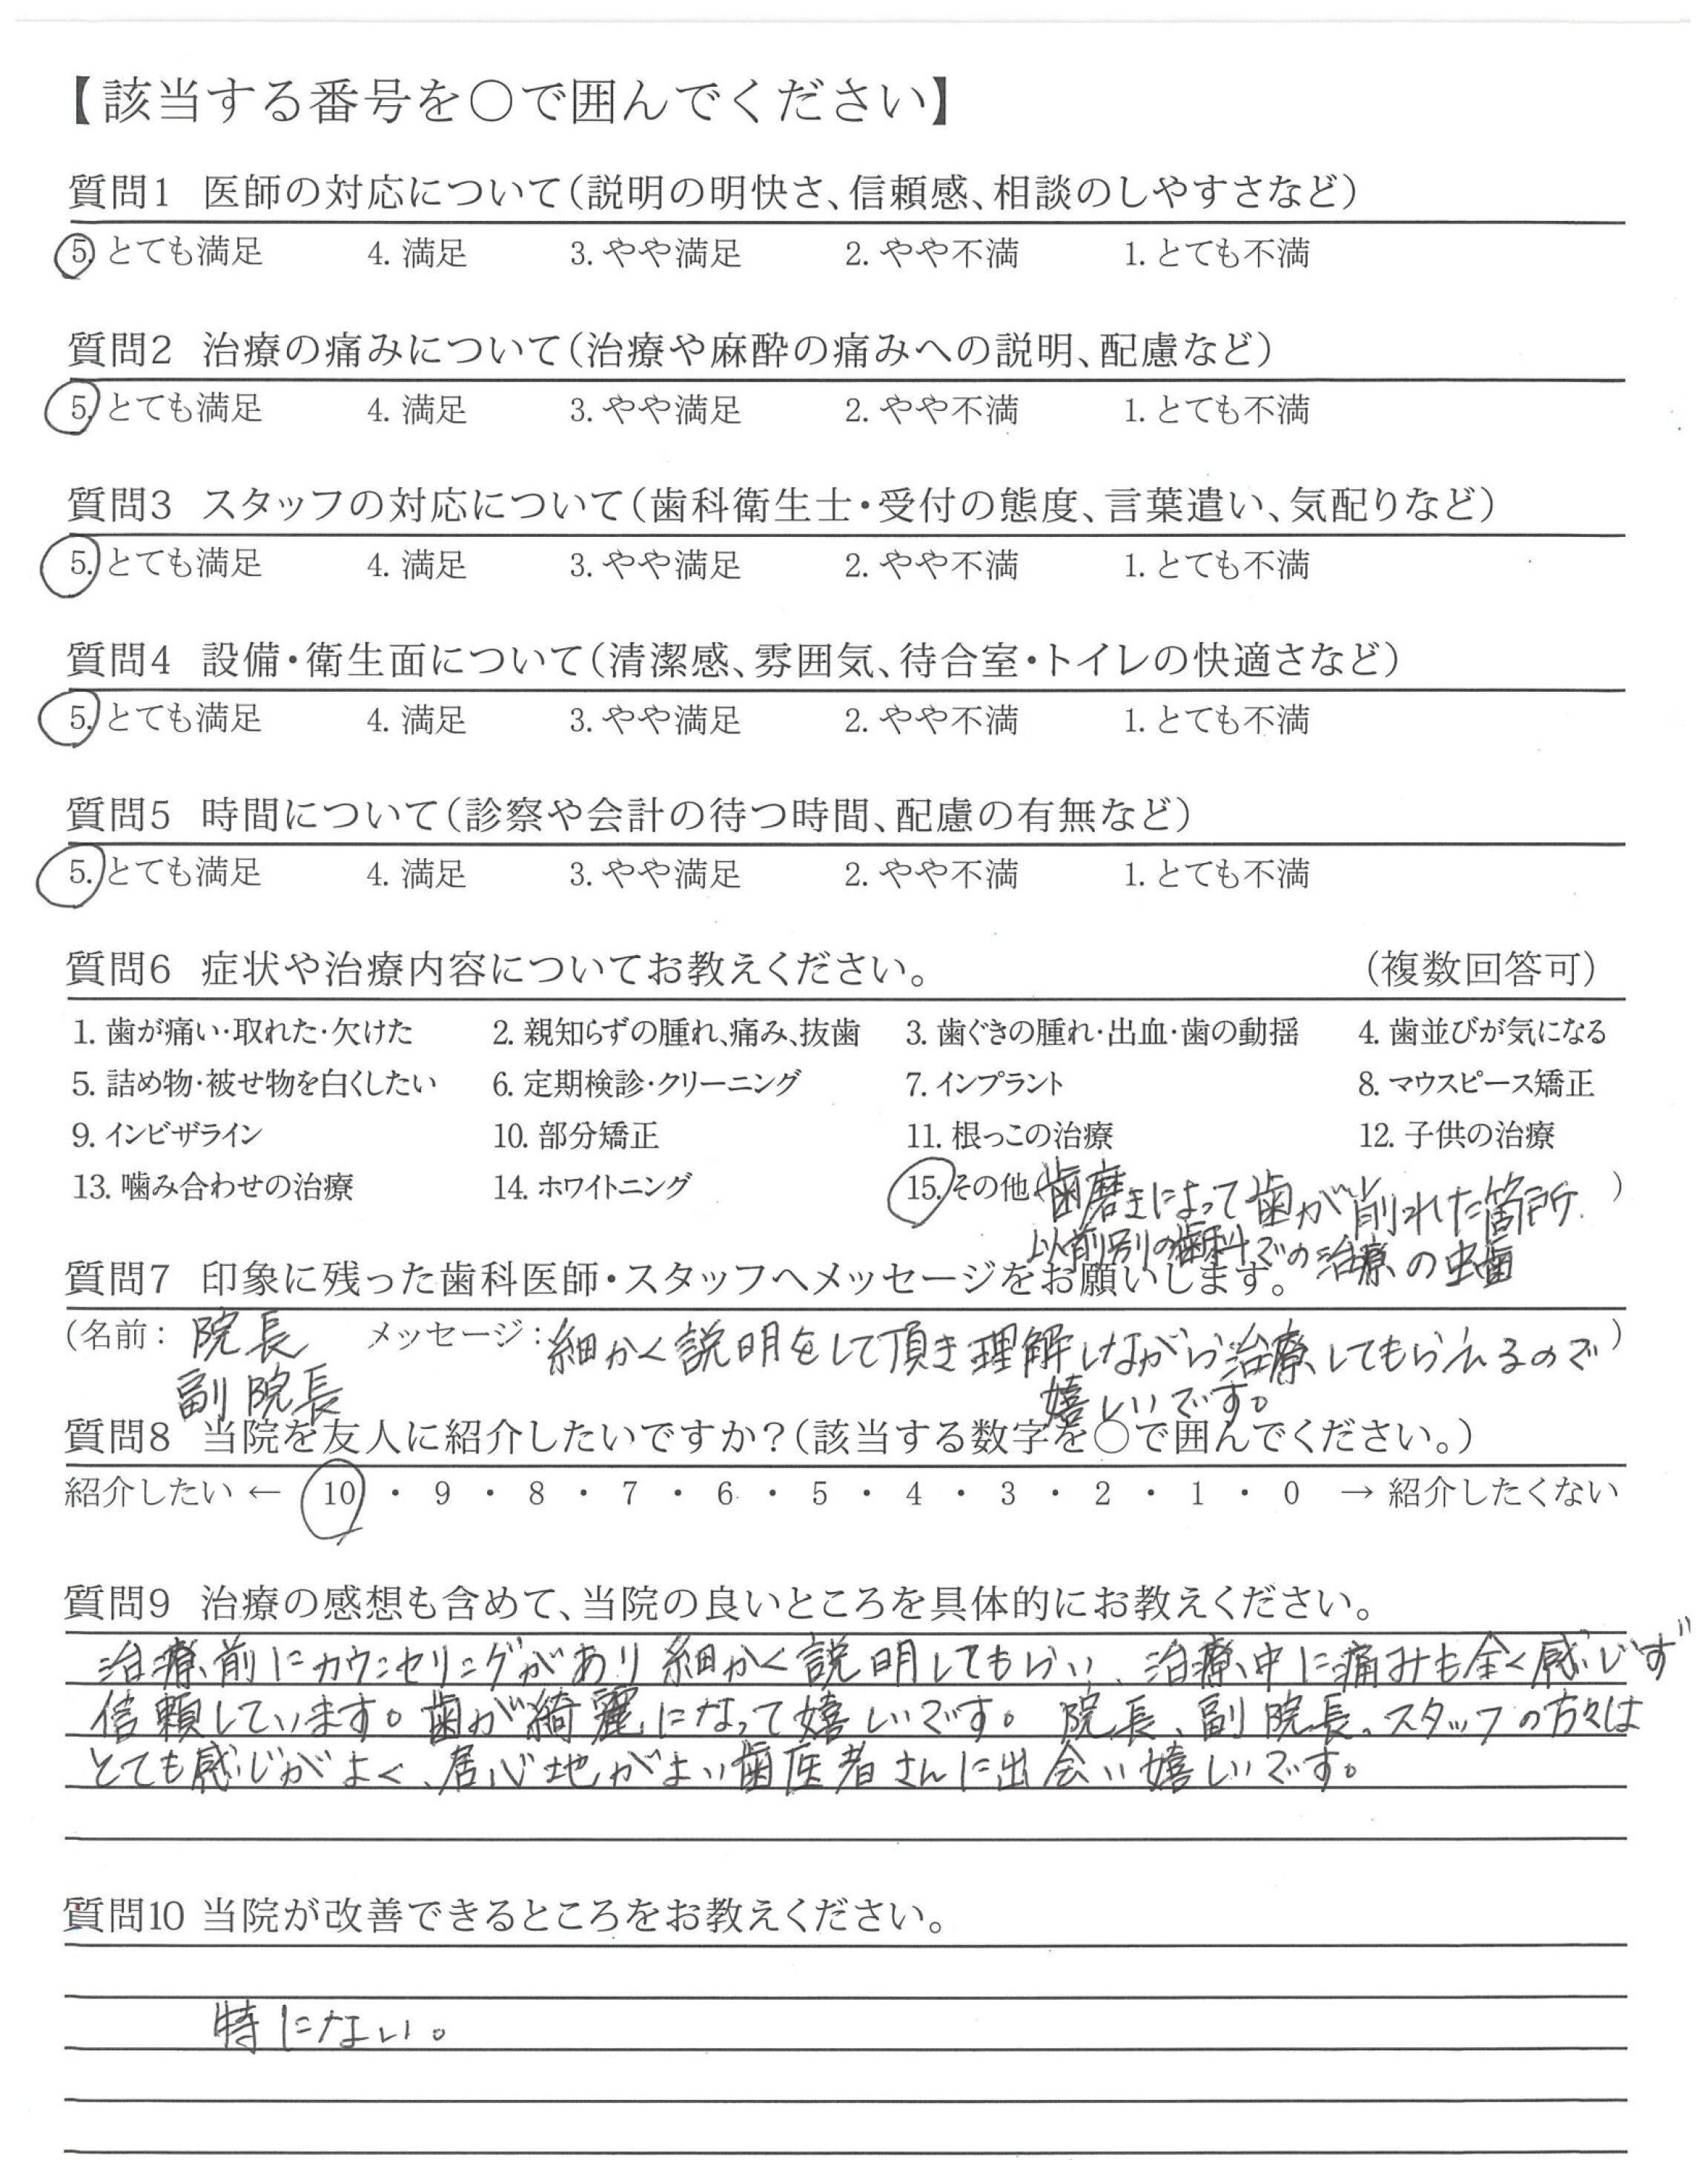 【該当する番号を○で囲んでください】
質問1 医師の対応について(説明の明快さ、信頼感、相談のしやすさなど)
5. とても満足 4. 満足 3. やや満足 2. やや不満 1. とても不満
質問2 治療の痛みについて(治療や麻酔の痛みへの説明、配慮など)
5. とても満足 4. 満足 3. やや満足 2. やや不満 1. とても不満
質問3 スタッフの対応について(歯科衛生士・受付の態度、言葉遣い、気配りなど)
5. とても満足 4. 満足 3. やや満足 2. やや不満 1. とても不満
質問4 設備・衛生面について(清潔感、雰囲気、待合室・トイレの快適さなど)
5. とても満足 4. 満足 3. やや満足 2. やや不満 1. とても不満
質問5 時間について(診察や会計の待つ時間、配慮の有無など)
5. とても満足 4. 満足 3. やや満足 2. やや不満 1. とても不満
質問6 症状や治療内容についてお教えください。 (複数回答可)
1. 歯が痛い・取れた・欠けた 2. 親知らずの腫れ、痛み、抜歯 3. 歯ぐきの腫れ・出血・歯の動揺 4. 歯並びが気になる
5. 詰め物・被せ物を白くしたい 6. 定期検診・クリーニング 7. インプラント 8. マウスピース矯正
9. インビザライン 10. 部分矯正 11. 根っこの治療 12. 子供の治療
13. 噛み合わせの治療 14. ホワイトニング 15. その他(歯磨きによって歯が削れた箇所. )
以前別の歯科での治療の虫歯
質問7 印象に残った歯科医師・スタッフへメッセージをお願いします。
(名前: 院長 メッセージ: 細かく説明をして頂き理解しながら治療してもらえるので)
副院長 嬉しいです。
質問8 当院を友人に紹介したいですか?(該当する数字を○で囲んでください。)
紹介したい ← 10 ・ 9 ・ 8 ・ 7 ・ 6 ・ 5 ・ 4 ・ 3 ・ 2 ・ 1 ・ 0 → 紹介したくない
質問9 治療の感想も含めて、当院の良いところを具体的にお教えください。
治療前にカウンセリングがあり細かく説明してもらい、治療中に痛みも全く感じず
信頼しています。歯が綺麗になって嬉しいです。院長、副院長、スタッフの方々は
とても感じがよく、居心地がよい歯医者さんに出会い嬉しいです。
質問10 当院が改善できるところをお教えください。
特にない。